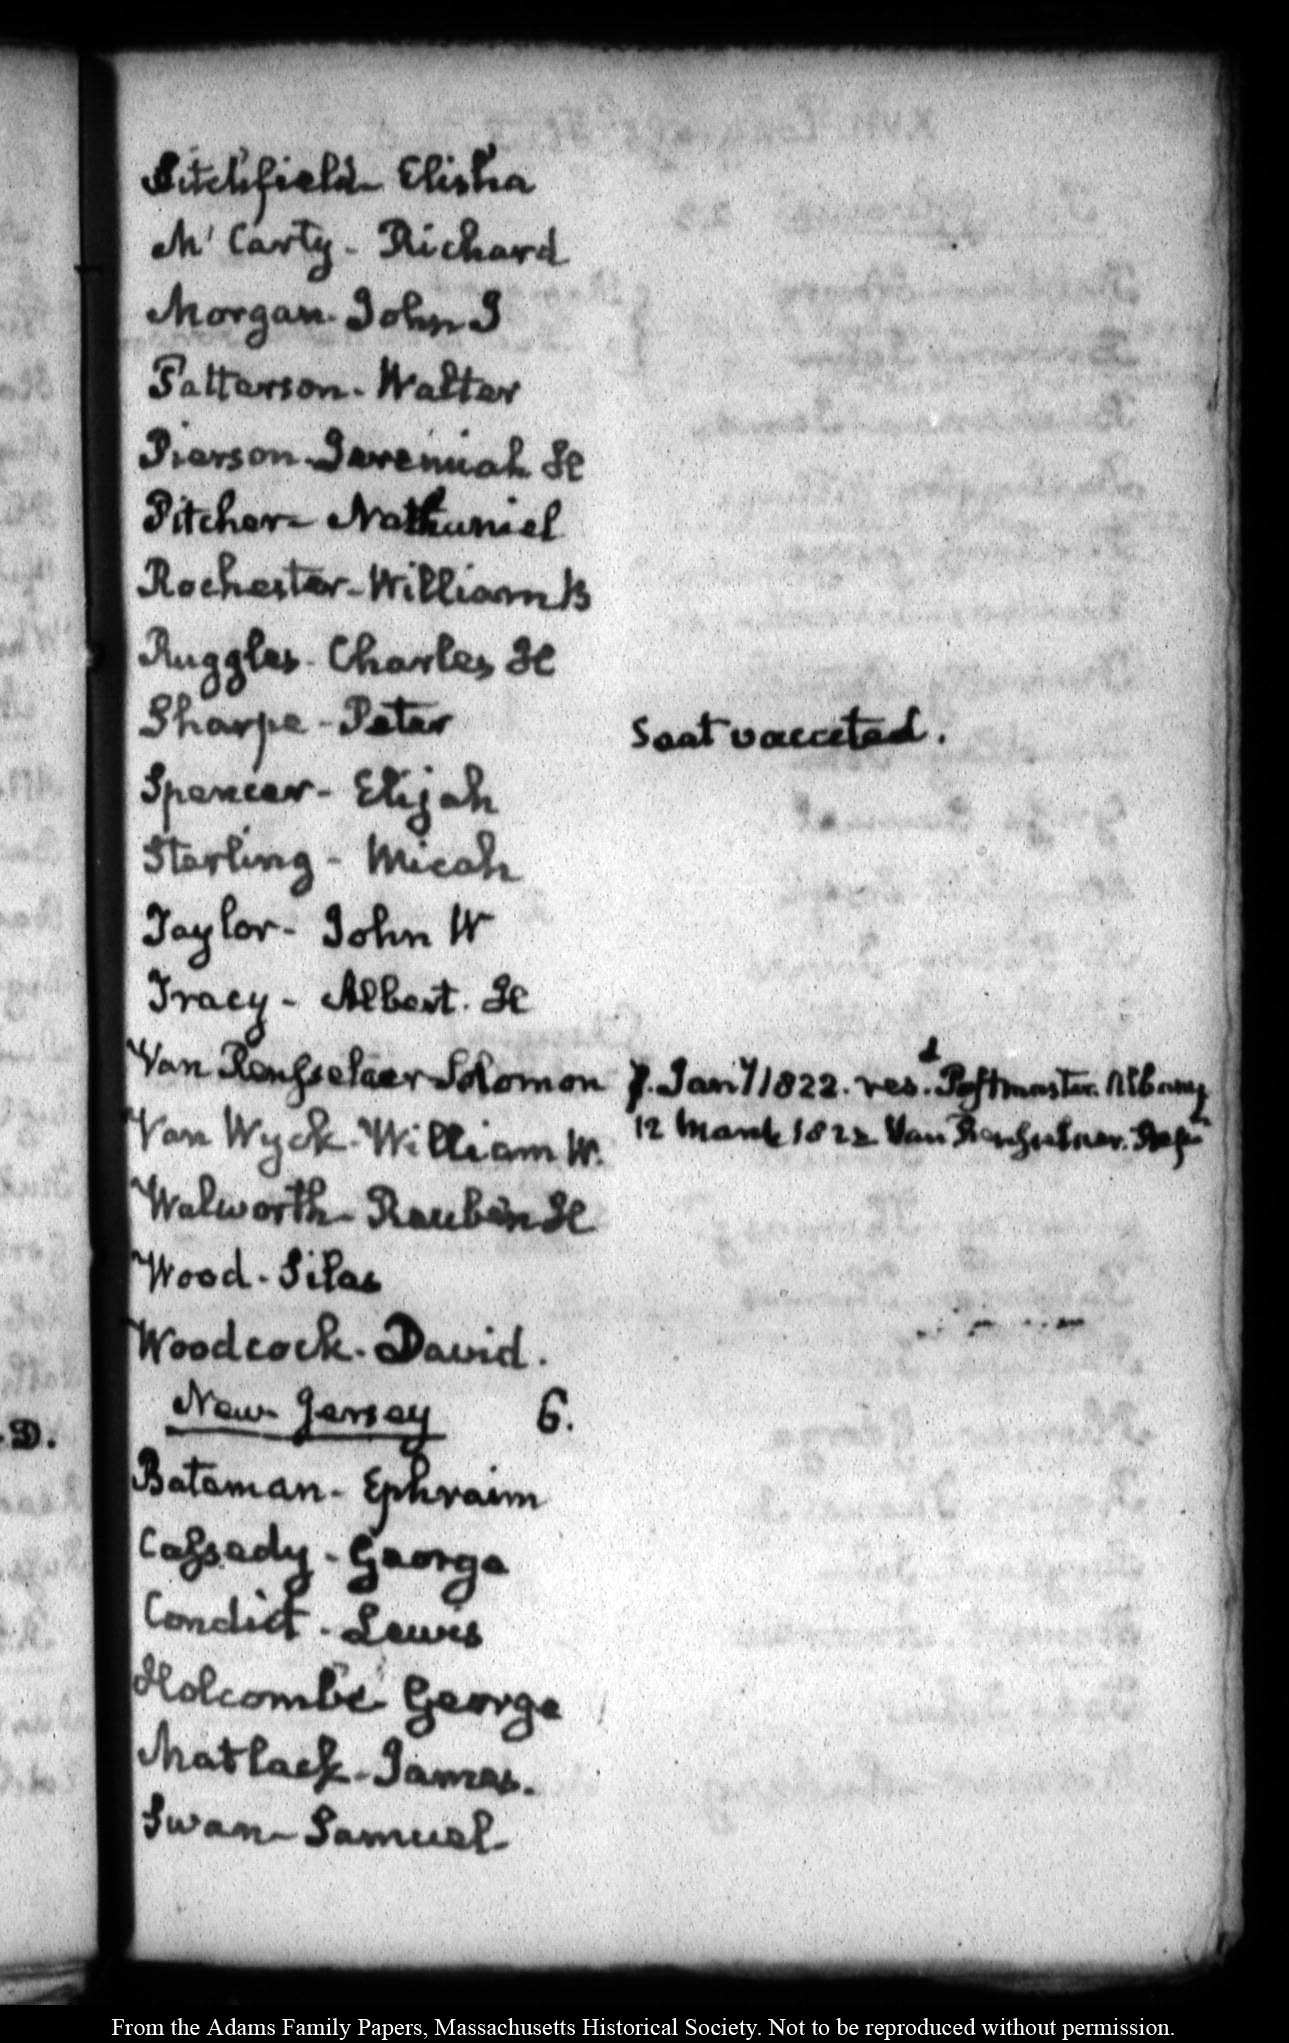 Litchfield - Elisha
Mc Carty - Richard
Morgan - John J
Patterson - Walter
Pierson - Jeremiah H
Pitcher - Nathaniel
Rochester - William B
Ruggles - Charles H
Sharpe - Peter Seat vaccated.
Spencer - Elijah
Sterling - Micah
Taylor - John W
Tracy - Albert. H
Van Rensselaer Solomon 7. Jany 1822. resd. Postmaster. Albany
Van Wyck - William W. 12 March 1822 Van Rensselaer.
Walworth - Reuben H
Wood - Silas
Woodcock - David.
New Jersey 6.
D.
Bateman - Ephraim
Cassedy - George
Condict - Lewis
Holcombe George
Matlack - James.
Swan - Samuel
From the Adams Family Papers, Massachusetts Historical Society. Not to be reproduced without permission.